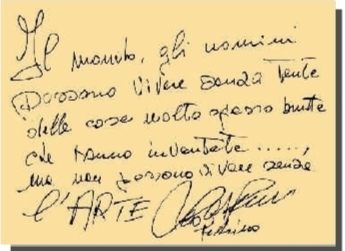 Il mondo, gli uomini
Possono vivere senza tante
delle cose molto spesso brutte
che hanno inventate .....,
ma non possono vivere senza
l'ARTE